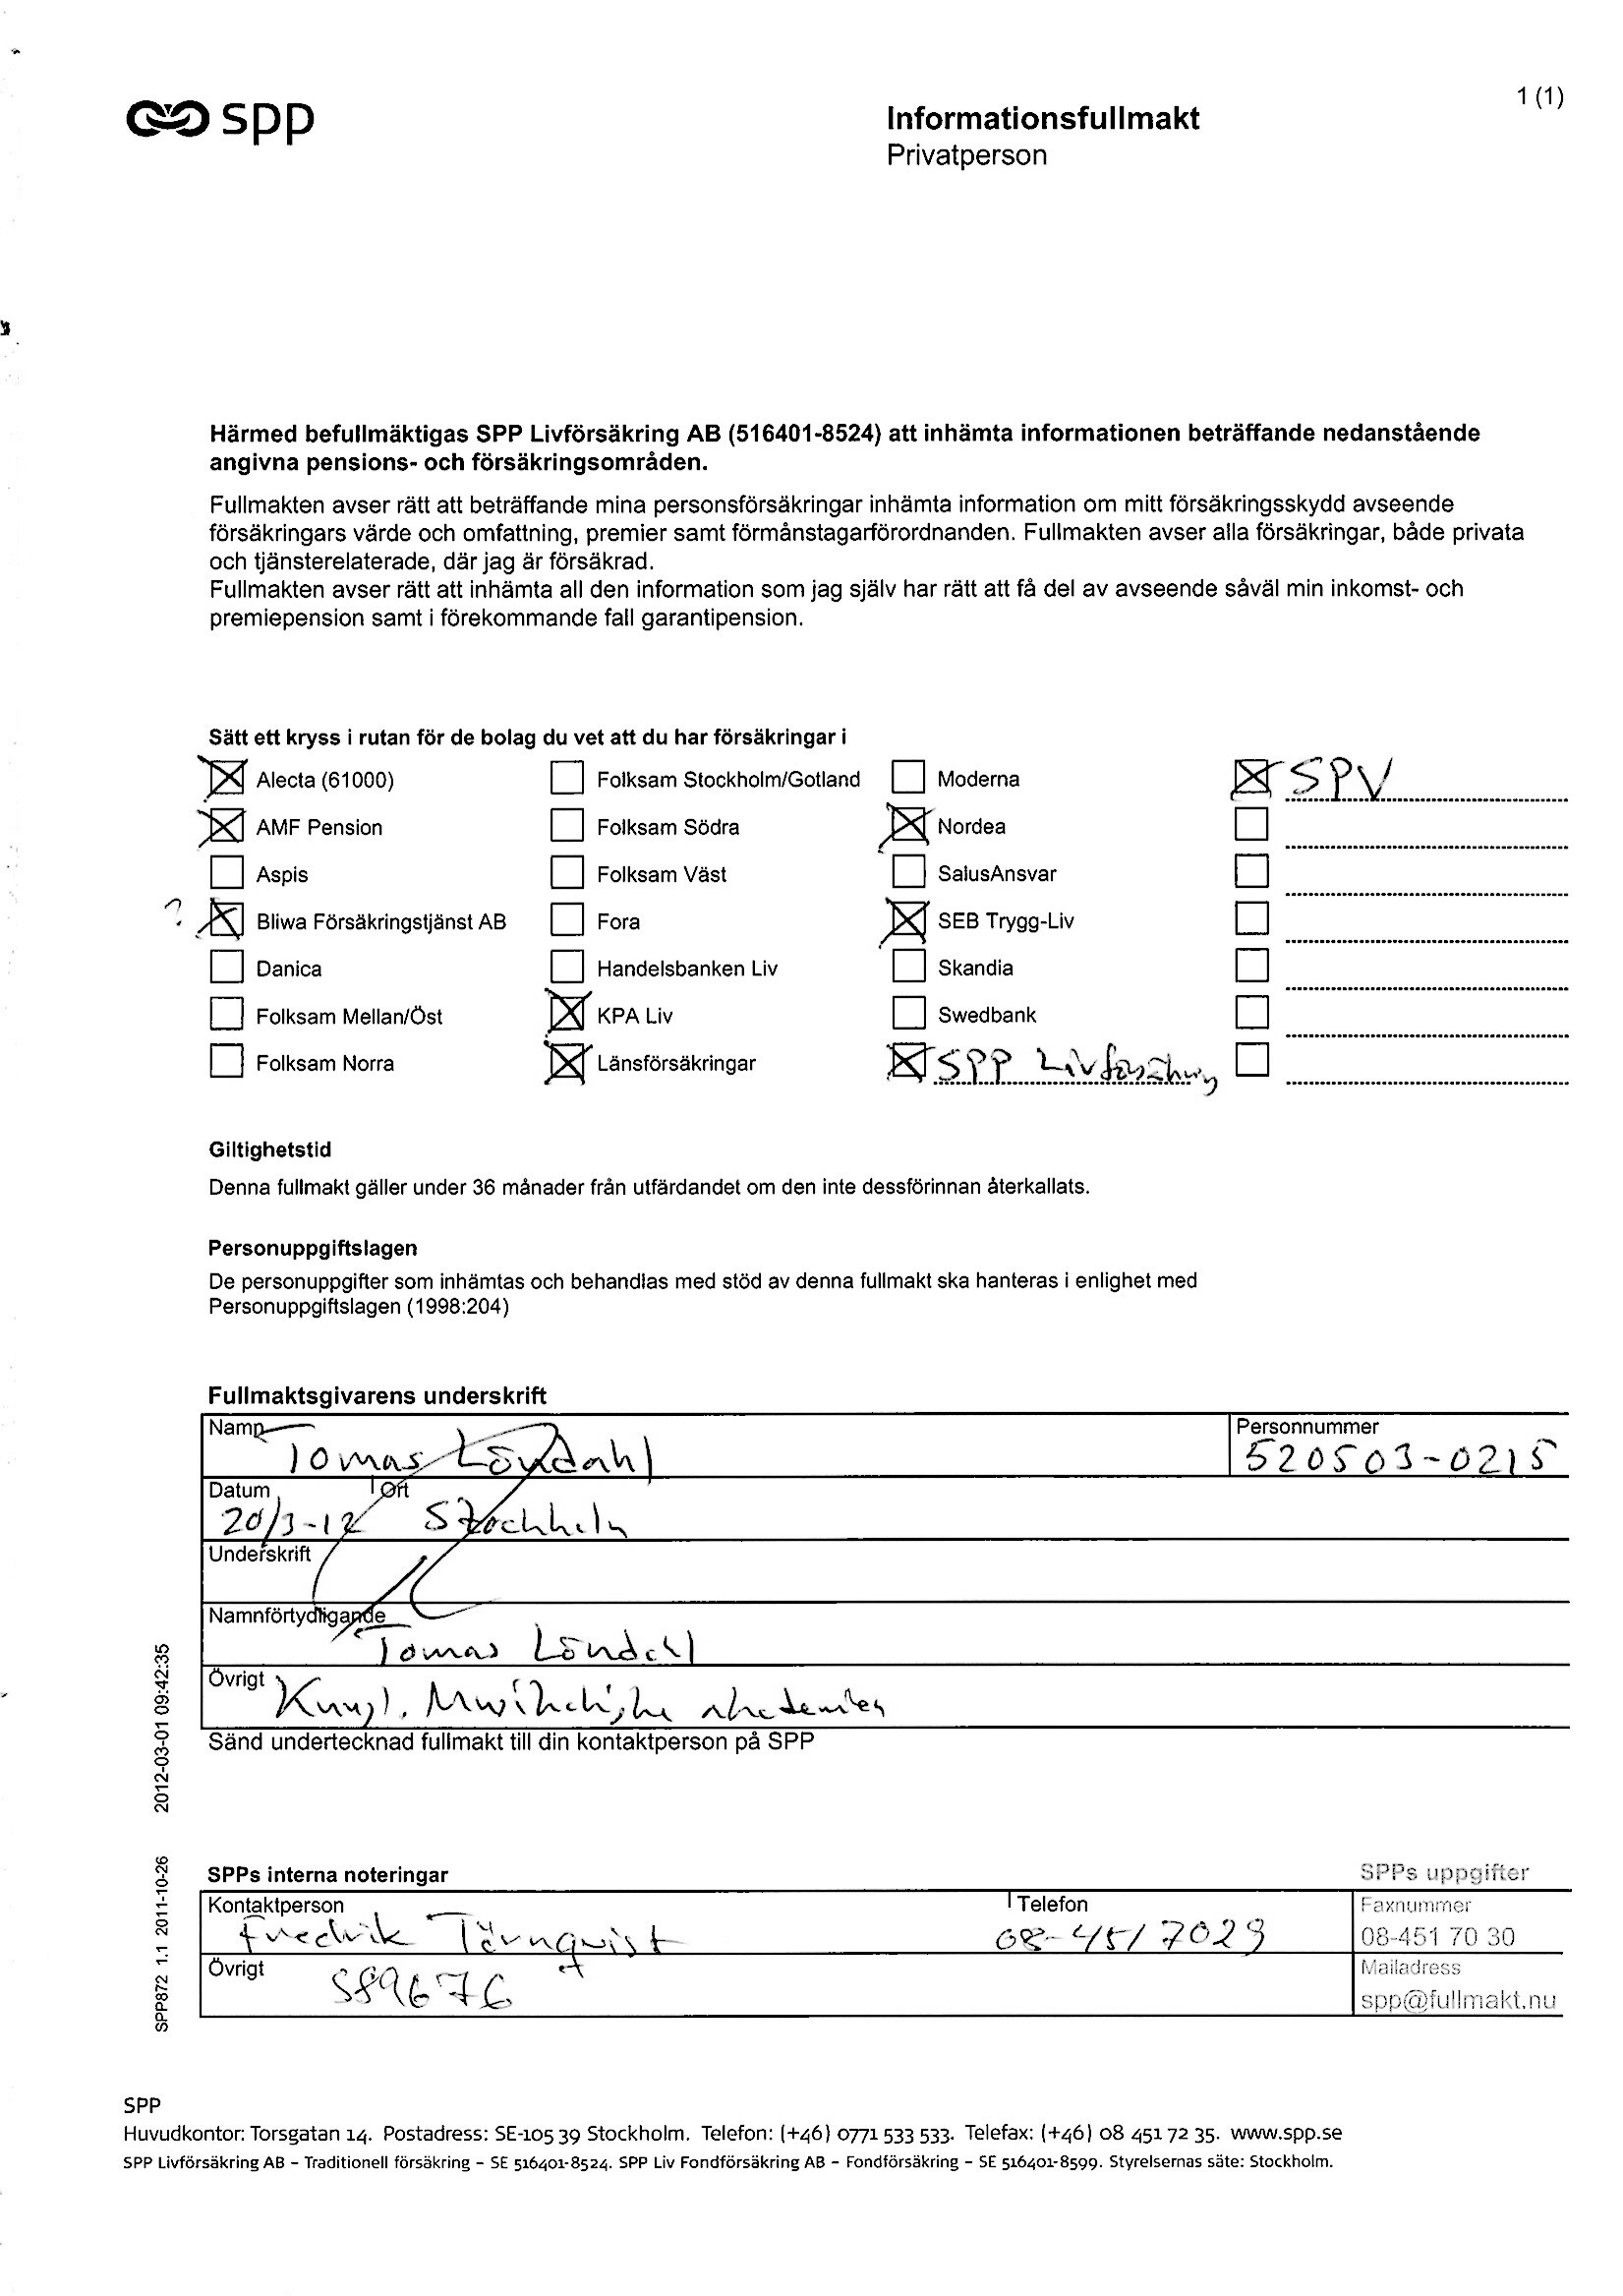 spp
Informationsfullmakt
Privatperson
1 (1)
Härmed befullmäktigas SPP Livförsäkring AB (516401-8524) att inhämta informationen beträffande nedanstående
angivna pensions- och försäkringsområden.
Fullmakten avser rätt att beträffande mina personsförsäkringar inhämta information om mitt försäkringsskydd avseende
försäkringars värde och omfattning, premier samt förmånstagarförordnanden. Fullmakten avser alla försäkringar, både privata
och tjänsterelaterade, där jag är försäkrad.
Fullmakten avser rätt att inhämta all den information som jag själv har rätt att få del av avseende såväl min inkomst- och
premiepension samt i förekommande fall garantipension.
Sätt ett kryss i rutan för de bolag du vet att du har försäkringar i
Alecta (61000) Folksam Stockholm/Gotland Moderna SPV
AMF Pension Folksam Södra Nordea
Aspis Folksam Väst SalusAnsvar
? Bliwa Försäkringstjänst AB Fora SEB Trygg-Liv
Danica Handelsbanken Liv Skandia
Folksam Mellan/Öst KPA Liv Swedbank
Folksam Norra Länsförsäkringar SPP Livförsäkring
Giltighetstid
Denna fullmakt gäller under 36 månader från utfärdandet om den inte dessförinnan återkallats.
Personuppgiftslagen
De personuppgifter som inhämtas och behandlas med stöd av denna fullmakt ska hanteras i enlighet med
Personuppgiftslagen (1998:204)
Fullmaktsgivarens underskrift
Namn Personnummer
Tomas Löndahl 520503-0215
Datum Ort
20/3-12 Stockholm
Underskrift
Namnförtydligande
Tomas Löndahl
Övrigt
Kungl. Musikaliska akademien
Sänd undertecknad fullmakt till din kontaktperson på SPP
2012-03-01 09:42:35
SPP872 1.1 2011-10-26
SPPs interna noteringar SPPs uppgifter
Kontaktperson Telefon Faxnummer
Fredrik Törnqvist 08-451 7029 08-451 70 30
Övrigt Mailadress
S89676 spp@fullmakt.nu
SPP
Huvudkontor: Torsgatan 14. Postadress: SE-105 39 Stockholm. Telefon: (+46) 0771 533 533. Telefax: (+46) 08 451 72 35. www.spp.se
SPP Livförsäkring AB – Traditionell försäkring – SE 516401-8524. SPP Liv Fondförsäkring AB – Fondförsäkring – SE 516401-8599. Styrelsernas säte: Stockholm.